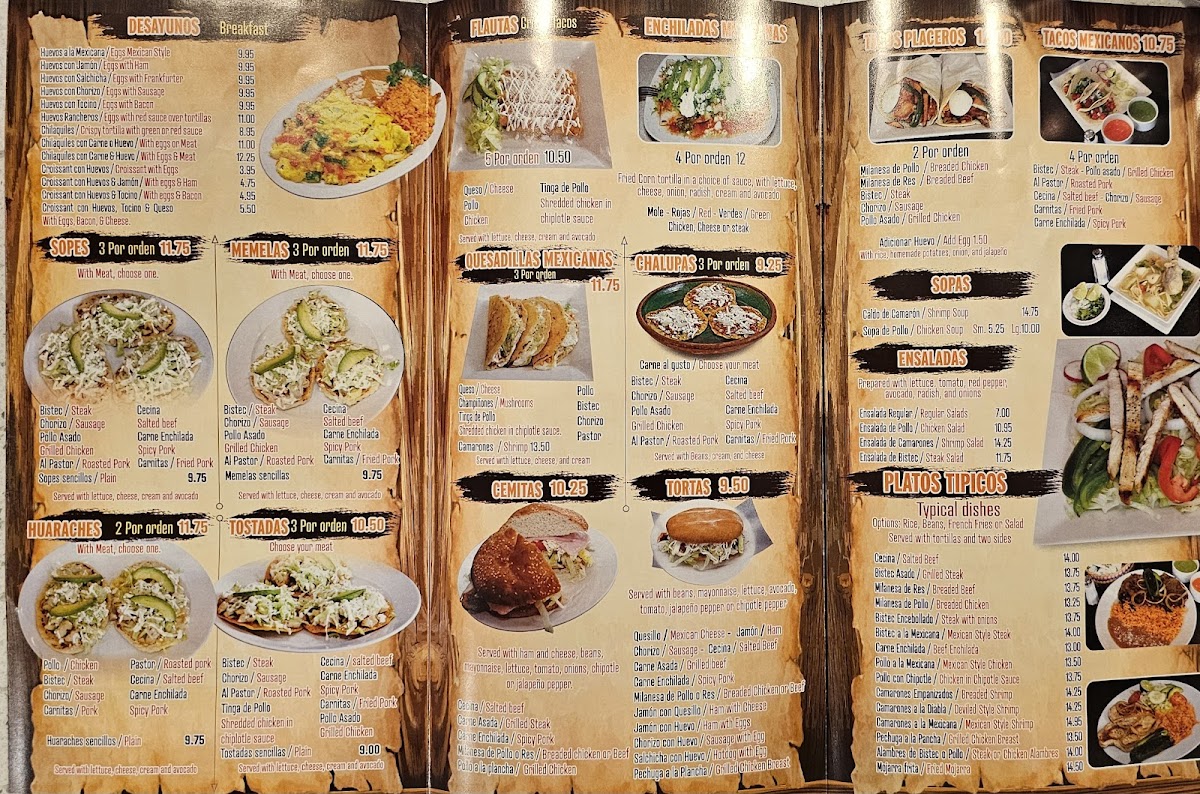 DESAYUNOS Breakfast
Huevos a la Mexicana / Eggs Mexican Style 9.95
Huevos con Jamón / Eggs with Ham 9.95
Huevos con Salchicha / Eggs with Frankfurter 9.95
Huevos con Chorizo / Eggs with Sausage 9.95
Huevos con Tocino / Eggs with Bacon 9.95
Huevos Rancheros / Eggs with red sauce over tortillas 11.00
Chilaquiles / Crispy tortilla with green or red sauce 8.95
Chilaquiles con Carne o Huevo / With eggs or Meat 11.00
Chilaquiles con Carne & Huevo / With Eggs & Meat 12.25
Croissant con Huevos / Croissant with Eggs 3.95
Croissant con Huevos & Jamón / With eggs & Ham 4.75
Croissant con Huevos & Tocino / With eggs & Bacon 4.95
Croissant con Huevos, Tocino & Queso 5.50
With Eggs, Bacon, & Cheese.
SOPES 3 Por orden 11.75
With Meat, choose one.
Bistec / Steak Cecina
Chorizo / Sausage Salted beef
Pollo Asado Carne Enchilada
Grilled Chicken Spicy Pork
Al Pastor / Roasted Pork Carnitas / Fried Pork
Sopes sencillos / Plain 9.75
Served with lettuce, cheese, cream and avocado
MEMELAS 3 Por orden 11.75
With Meat, choose one.
Bistec / Steak Cecina
Chorizo / Sausage Salted beef
Pollo Asado Carne Enchilada
Grilled Chicken Spicy Pork
Al Pastor / Roasted Pork Carnitas / Fried Pork
Memelas sencillos 9.75
Served with lettuce, cheese, cream and avocado
HUARACHES 2 Por orden 11.75
With Meat, choose one.
Pollo / Chicken Pastor / Roasted pork
Bistec / Steak Cecina / Salted beef
Chorizo / Sausage Carne Enchilada
Carnitas / Pork Spicy Pork
Huaraches sencillos / Plain 9.75
Served with lettuce, cheese, cream and avocado
TOSTADAS 3 Por orden 10.50
Choose your meat
Bistec / Steak Cecina / salted beef
Chorizo / Sausage Carne Enchilada
Al Pastor / Roasted Pork Spicy Pork
Tinga de Pollo Carnitas / Fried Pork
Shredded chicken in Pollo Asado
chipotle sauce Grilled Chicken
Tostadas sencillas / Plain 9.00
Served with lettuce, cheese, cream and avocado
FLAUTAS Tacos
5 Por orden 10.50
Queso / Cheese Tinga de Pollo
Pollo Shredded chicken in
Chicken chiplotle sauce
Served with lettuce, cheese, cream and avocado
ENCHILADAS
4 Por orden 12
Fried Corn tortilla in a choice of sauce, with lettuce,
cheese, onion, radish, cream and avocado
Mole - Rojas / Red - Verdes / Green
Chicken, Cheese or steak
QUESADILLAS MEXICANAS
3 Por orden 11.75
Queso / Cheese Pollo
Champiñones / Mushrooms Bistec
Tinga de Pollo Chorizo
Shredded chicken in chipotle sauce. Pastor
Camarones / Shrimp 13.50
Served with lettuce, cheese, and cream
CHALUPAS 3 Por orden 9.25
Carne al gusto / Choose your meat
Bistec / Steak Cecina
Chorizo / Sausage Salted beef
Pollo Asado Carne Enchilada
Grilled Chicken Spicy Pork
Al Pastor / Roasted Pork Carnitas / Fried Pork
Served with Beans, cream, and cheese
CEMITAS 10.25
Served with ham and cheese, beans,
mayonnaise, lettuce, tomato, onions, chipotle
or jalapeño pepper.
Cecina / Salted beef
Carne Asada / Grilled Steak
Carne Enchilada / Spicy Pork
Milanesa de Pollo o Res / Breaded chicken or Beef
Pollo a la plancha / Grilled Chicken
TORTAS 9.50
Served with beans, mayonnaise, lettuce, avocado,
tomato, jalapeño pepper or chipotle pepper
Quesillo / Mexican Cheese - Jamón / Ham
Chorizo / Sausage - Cecina / Salted Beef
Carne Asada / Grilled beef
Carne Enchilada / Spicy Pork
Milanesa de Pollo o Res / Breaded Chicken or Beef
Jamón con Quesillo / Ham with Cheese
Jamón con Huevo / Ham with Eggs
Chorizo con Huevo / Sausage with Egg
Salchicha con Huevo / Hotdog with Egg
Pechuga a la Plancha / Grilled Chicken Breast
PLACEROS
2 Por orden
Milanesa de Pollo / Breaded Chicken
Milanesa de Res / Breaded Beef
Bistec / Steak
Chorizo / Sausage
Pollo Asado / Grilled Chicken
Adicionar Huevo / Add Egg 1.50
With rice, homemade potatoes, onion, and jalapeño
TACOS MEXICANOS 10.75
4 Por orden
Bistec / Steak - Pollo asado / Grilled Chicken
Al Pastor / Roasted Pork
Cecina / Salted beef - Chorizo / Sausage
Carnitas / Fried Pork
Carne Enchilada / Spicy Pork
SOPAS
Caldo de Camarón / Shrimp Soup 14.75
Sopa de Pollo / Chicken Soup Sm. 5.25 Lg.10.00
ENSALADAS
Prepared with lettuce, tomato, red pepper,
avocado, radish, and onions
Ensalada Regular / Regular Salads 7.00
Ensalada de Pollo / Chicken Salad 10.95
Ensalada de Camarones / Shrimp Salad 14.25
Ensalada de Bistec / Steak Salad 11.75
PLATOS TIPICOS
Typical dishes
Options: Rice, Beans, French Fries or Salad
Served with tortillas and two sides
Cecina / Salted Beef 14.00
Bistec Asado / Grilled Steak 13.75
Milanesa de Res / Breaded Beef 13.75
Milanesa de Pollo / Breaded Chicken 13.25
Bistec Encebollado / Steak with onions 13.75
Bistec a la Mexicana / Mexican Style Steak 13.75
Carne Enchilada / Beef Enchilada 14.00
Pollo a la Mexicana / Mexican Style Chicken 13.50
Pollo con Chipotle / Chicken in Chipotle Sauce 13.75
Camarones Empanizados / Breaded Shrimp 14.25
Camarones a la Diabla / Deviled Style Shrimp 14.25
Camarones a la Mexicana / Mexican Style Shrimp 14.95
Pechuga a la Pancha / Grilled Chicken Breast 13.50
Alambres de Bistec o Pollo / Steak or Chicken Alambres 14.00
Mojarra frita / Fried Mojarra 14.50